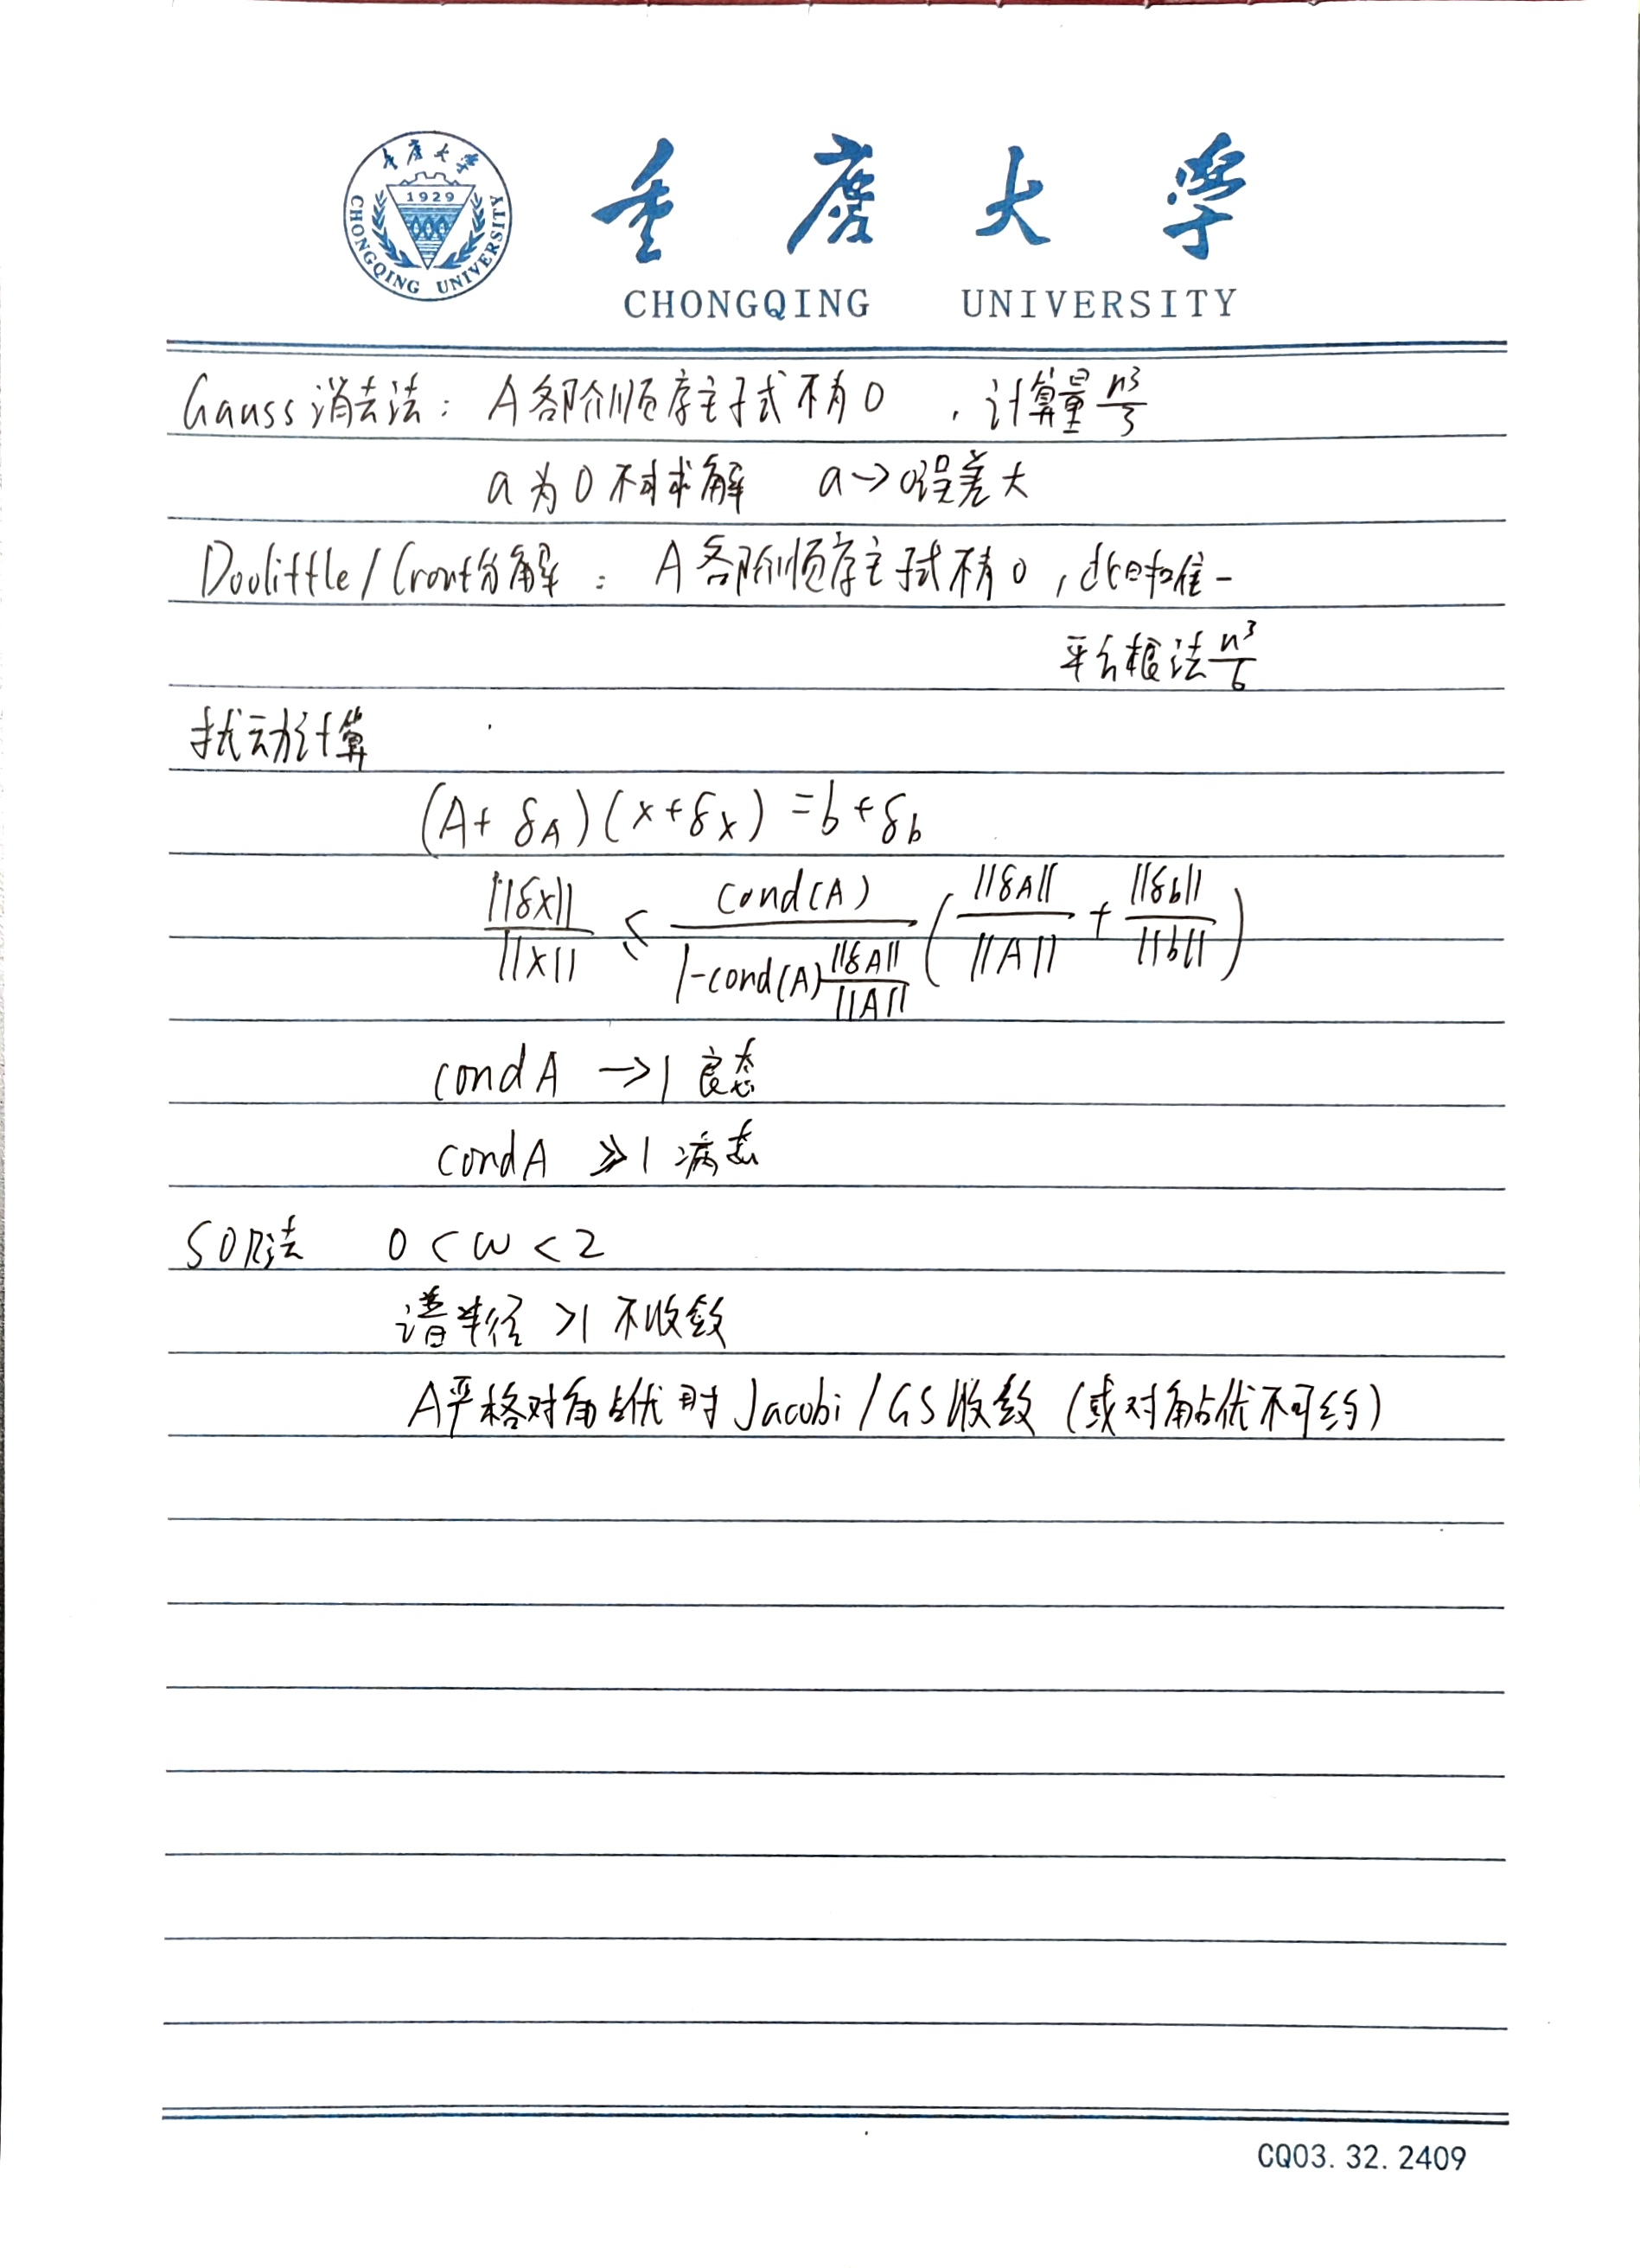 重庆大学
1929
CHONGQING UNIVERSITY
重庆大学
CHONGQING UNIVERSITY
Gauss消去法：A各阶顺序主子式不有0，计算量n³/3
a为0不可求解 a→0误差大
Doolittle/Crout分解：A各阶顺序主子式不有0，此时唯一
平方根法n³/6
扰动计算
(A+δA)(x+δx)=b+δb
||δx||/||x|| ≤ cond(A)/(1-cond(A)||δA||/||A||) (||δA||/||A|| + ||δb||/||b||)
condA →1 良态
condA ≫1 病态
SOR法 0<ω<2
谱半径 >1 不收敛
A严格对角占优时Jacobi/GS收敛（或对角占优不可约）
CQ03.32.2409